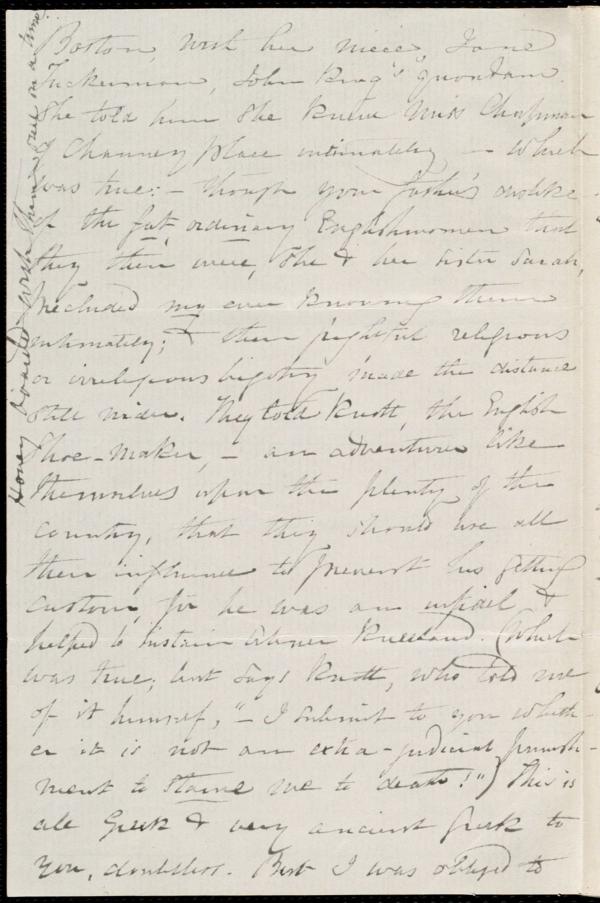 Boston, with her niece, Jane
Tuckerman, John King's "quondam.
She told him she knew Miss Chapman
of Chauncy Place intimately — which
was true: — though your father's dislike
of the fat, ordinary Englishwomen that
they then were, she & her sister Sarah,
precluded my ever knowing them
intimately; & their frightful religious
or irreligious bigotry made the distance
still wider. They told Knott, the English
Shoe-maker, — an adventurer like
themselves upon the plenty of the
country, that they should use all
their influence to prevent his getting
custom, for he was an infidel &
helped to sustain Abner Kneeland. (Which
was true; but says Knott, who told me
of it himself, "— I submit to you wheth-
er it is not an extra-judicial punish-
ment to starve me to death!") This is
all Greek & very ancient Greek to
you, doubtless. But I was obliged to
Honey boarded with them once on a time